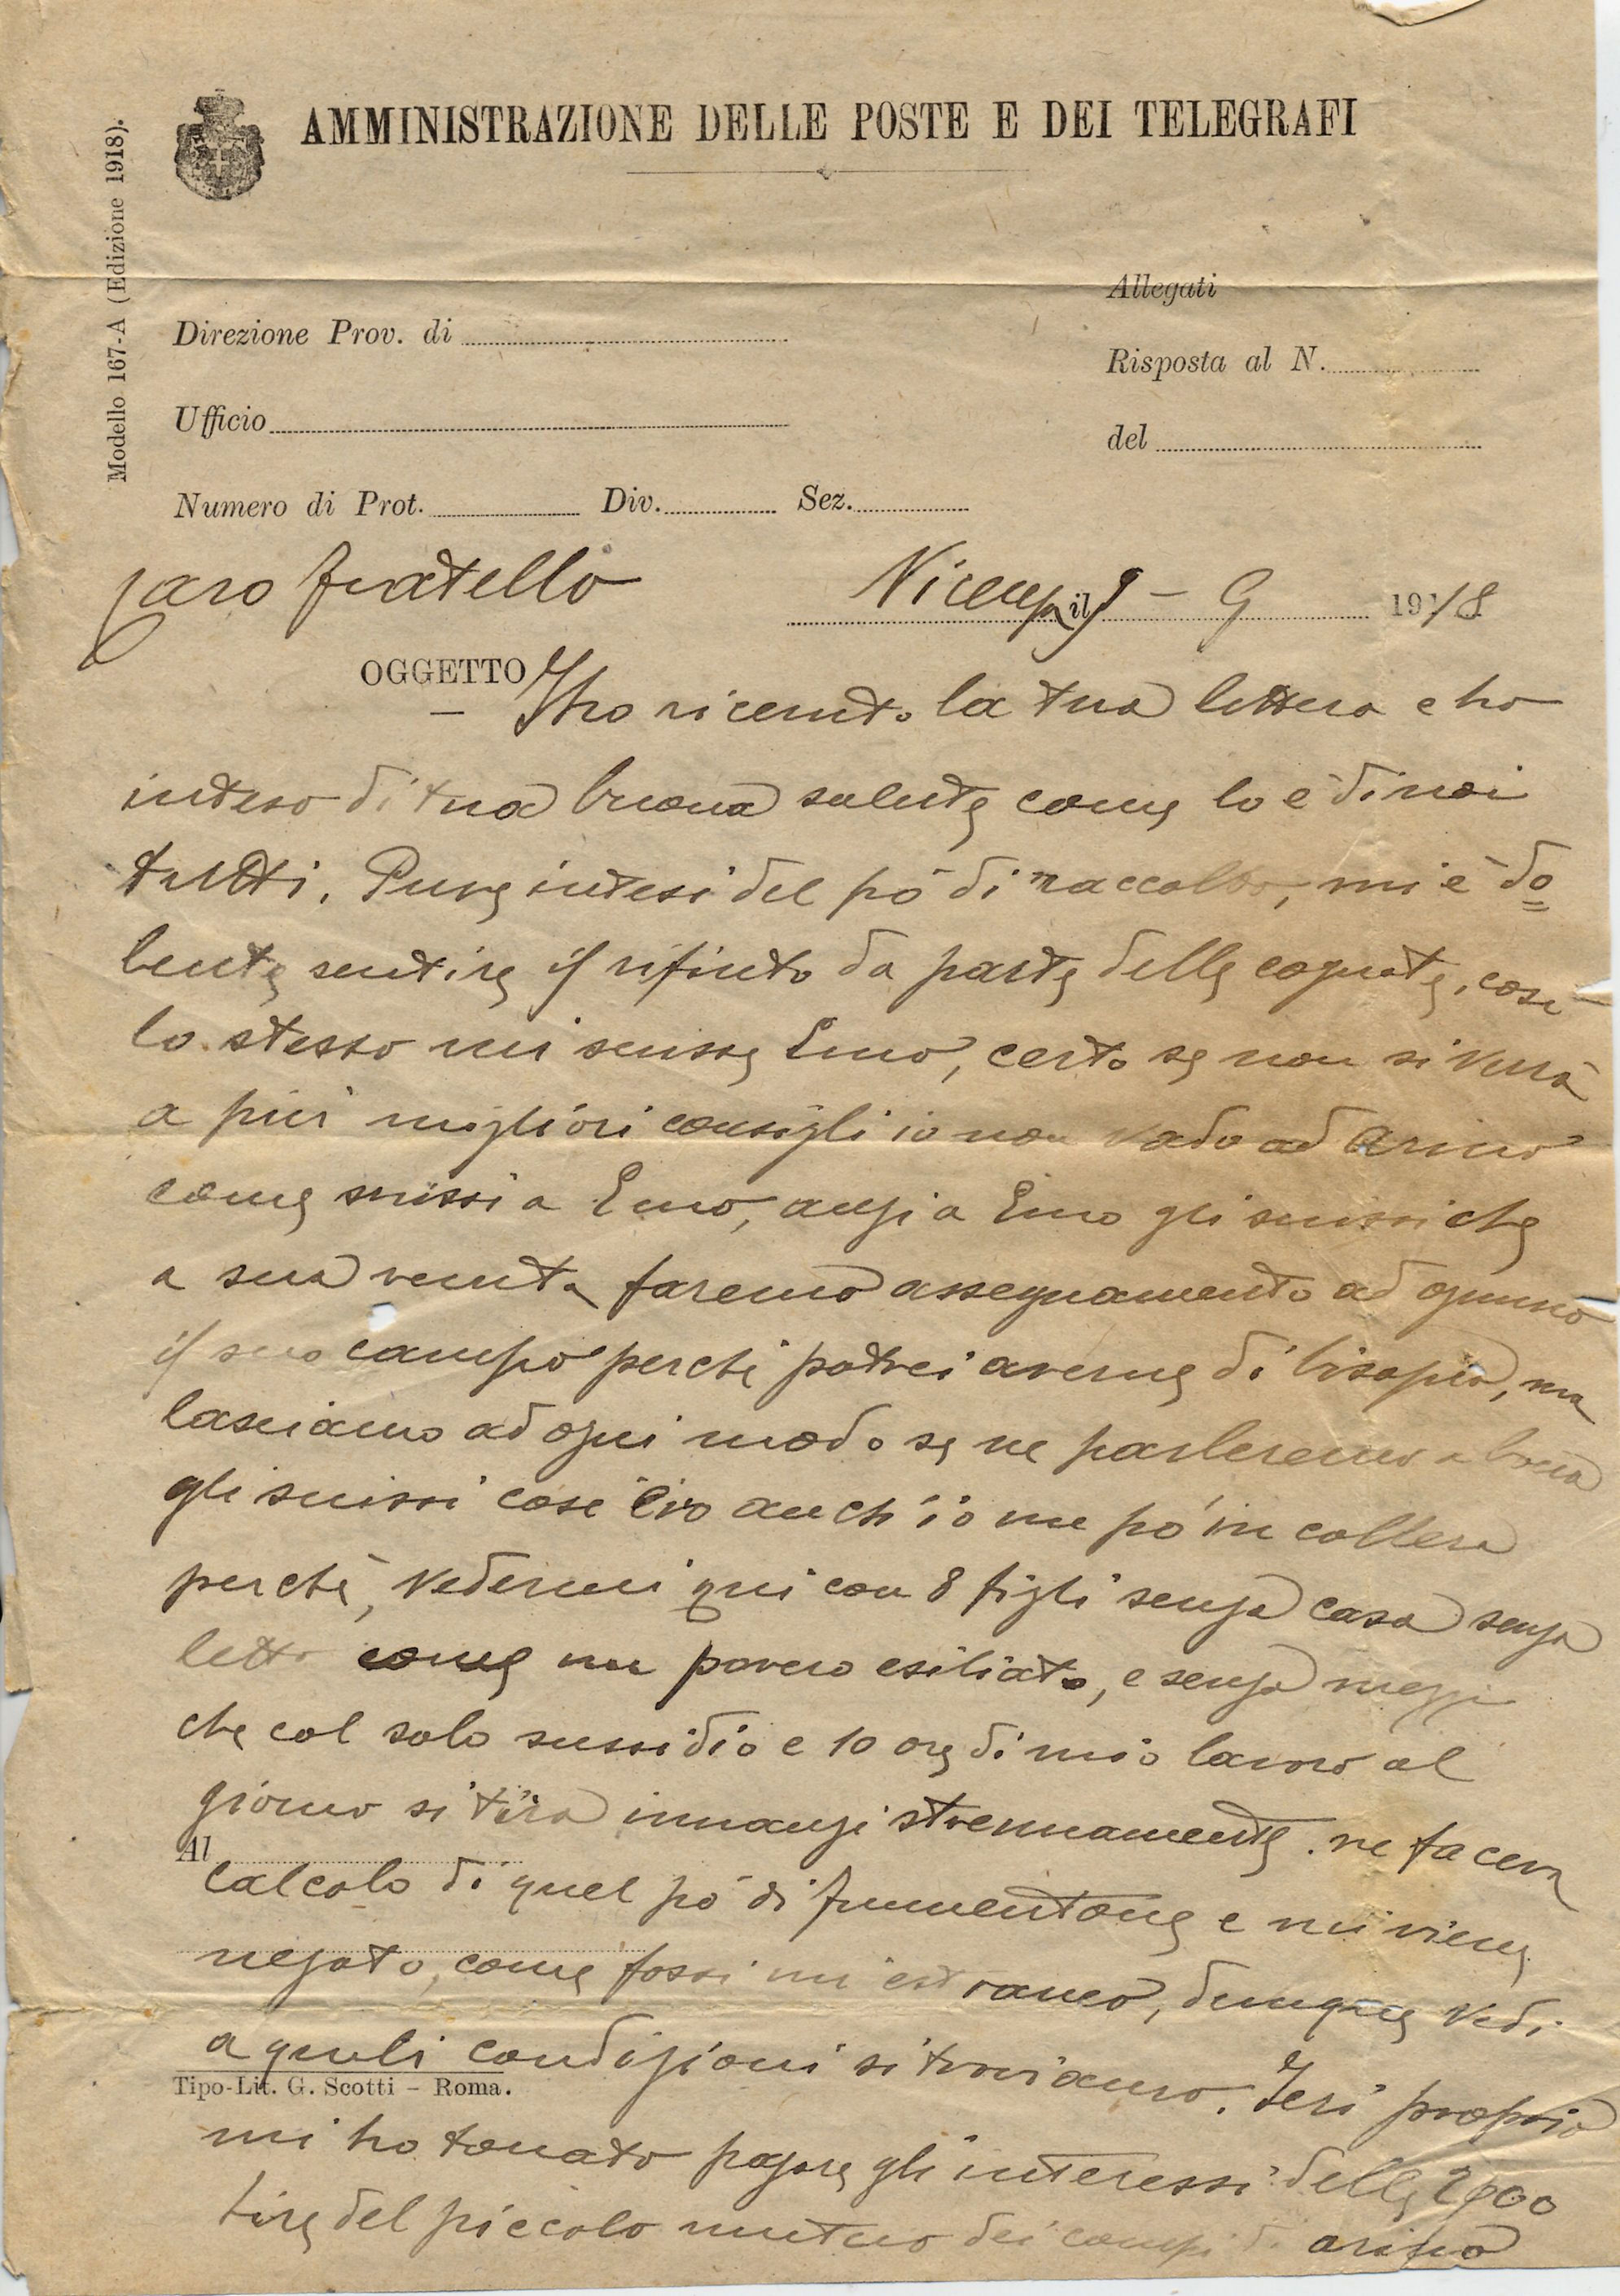 Modello 167-A (Edizione 1918).
AMMINISTRAZIONE DELLE POSTE E DEI TELEGRAFI
Allegati
Direzione Prov. di
Risposta al N.
Ufficio
del
Numero di Prot. Div. Sez.
Caro fratello
il 9 - 9 1918
OGGETTO
Ho ricevuto la tua lettera e ho
inteso di tua buona salute come lo è di noi
tutti. Pure intesi del pó di raccolto, mi è do
lente sentire il rifiuto da parte delle cognate, cose
lo stesso mi scrisse Emo, certo se non si verrà
a piú migliori consigli io non vado ad
come scrissi a Emo, anzi a Emo gli scrissi che
a sua venuta faremo assegnamento ad ognuno
il suo campo perche potrei averne di bisogno, ma
lasciamo ad ogni modo se ne parleremo a bocca
gli scrissi cose ero anch'io un pó in collera
perchè, vedermi qui con 8 figli senza casa senza
letto come un povero esiliato, e senza mezzi
che col solo sussidio e 10 ore di mio lavoro al
giorno si tira innanzi strennamente. ne faceva
Al
calcolo di quel pó di frumentone e mi viene
negato, come fossi un estraneo, dunque vedi
a quali condizioni si troviamo. Ieri proprio
Tipo-Lit. G. Scotti - Roma.
mi ho tonato pagare gli interessi delle
lire del piccolo mutuo dei campi di